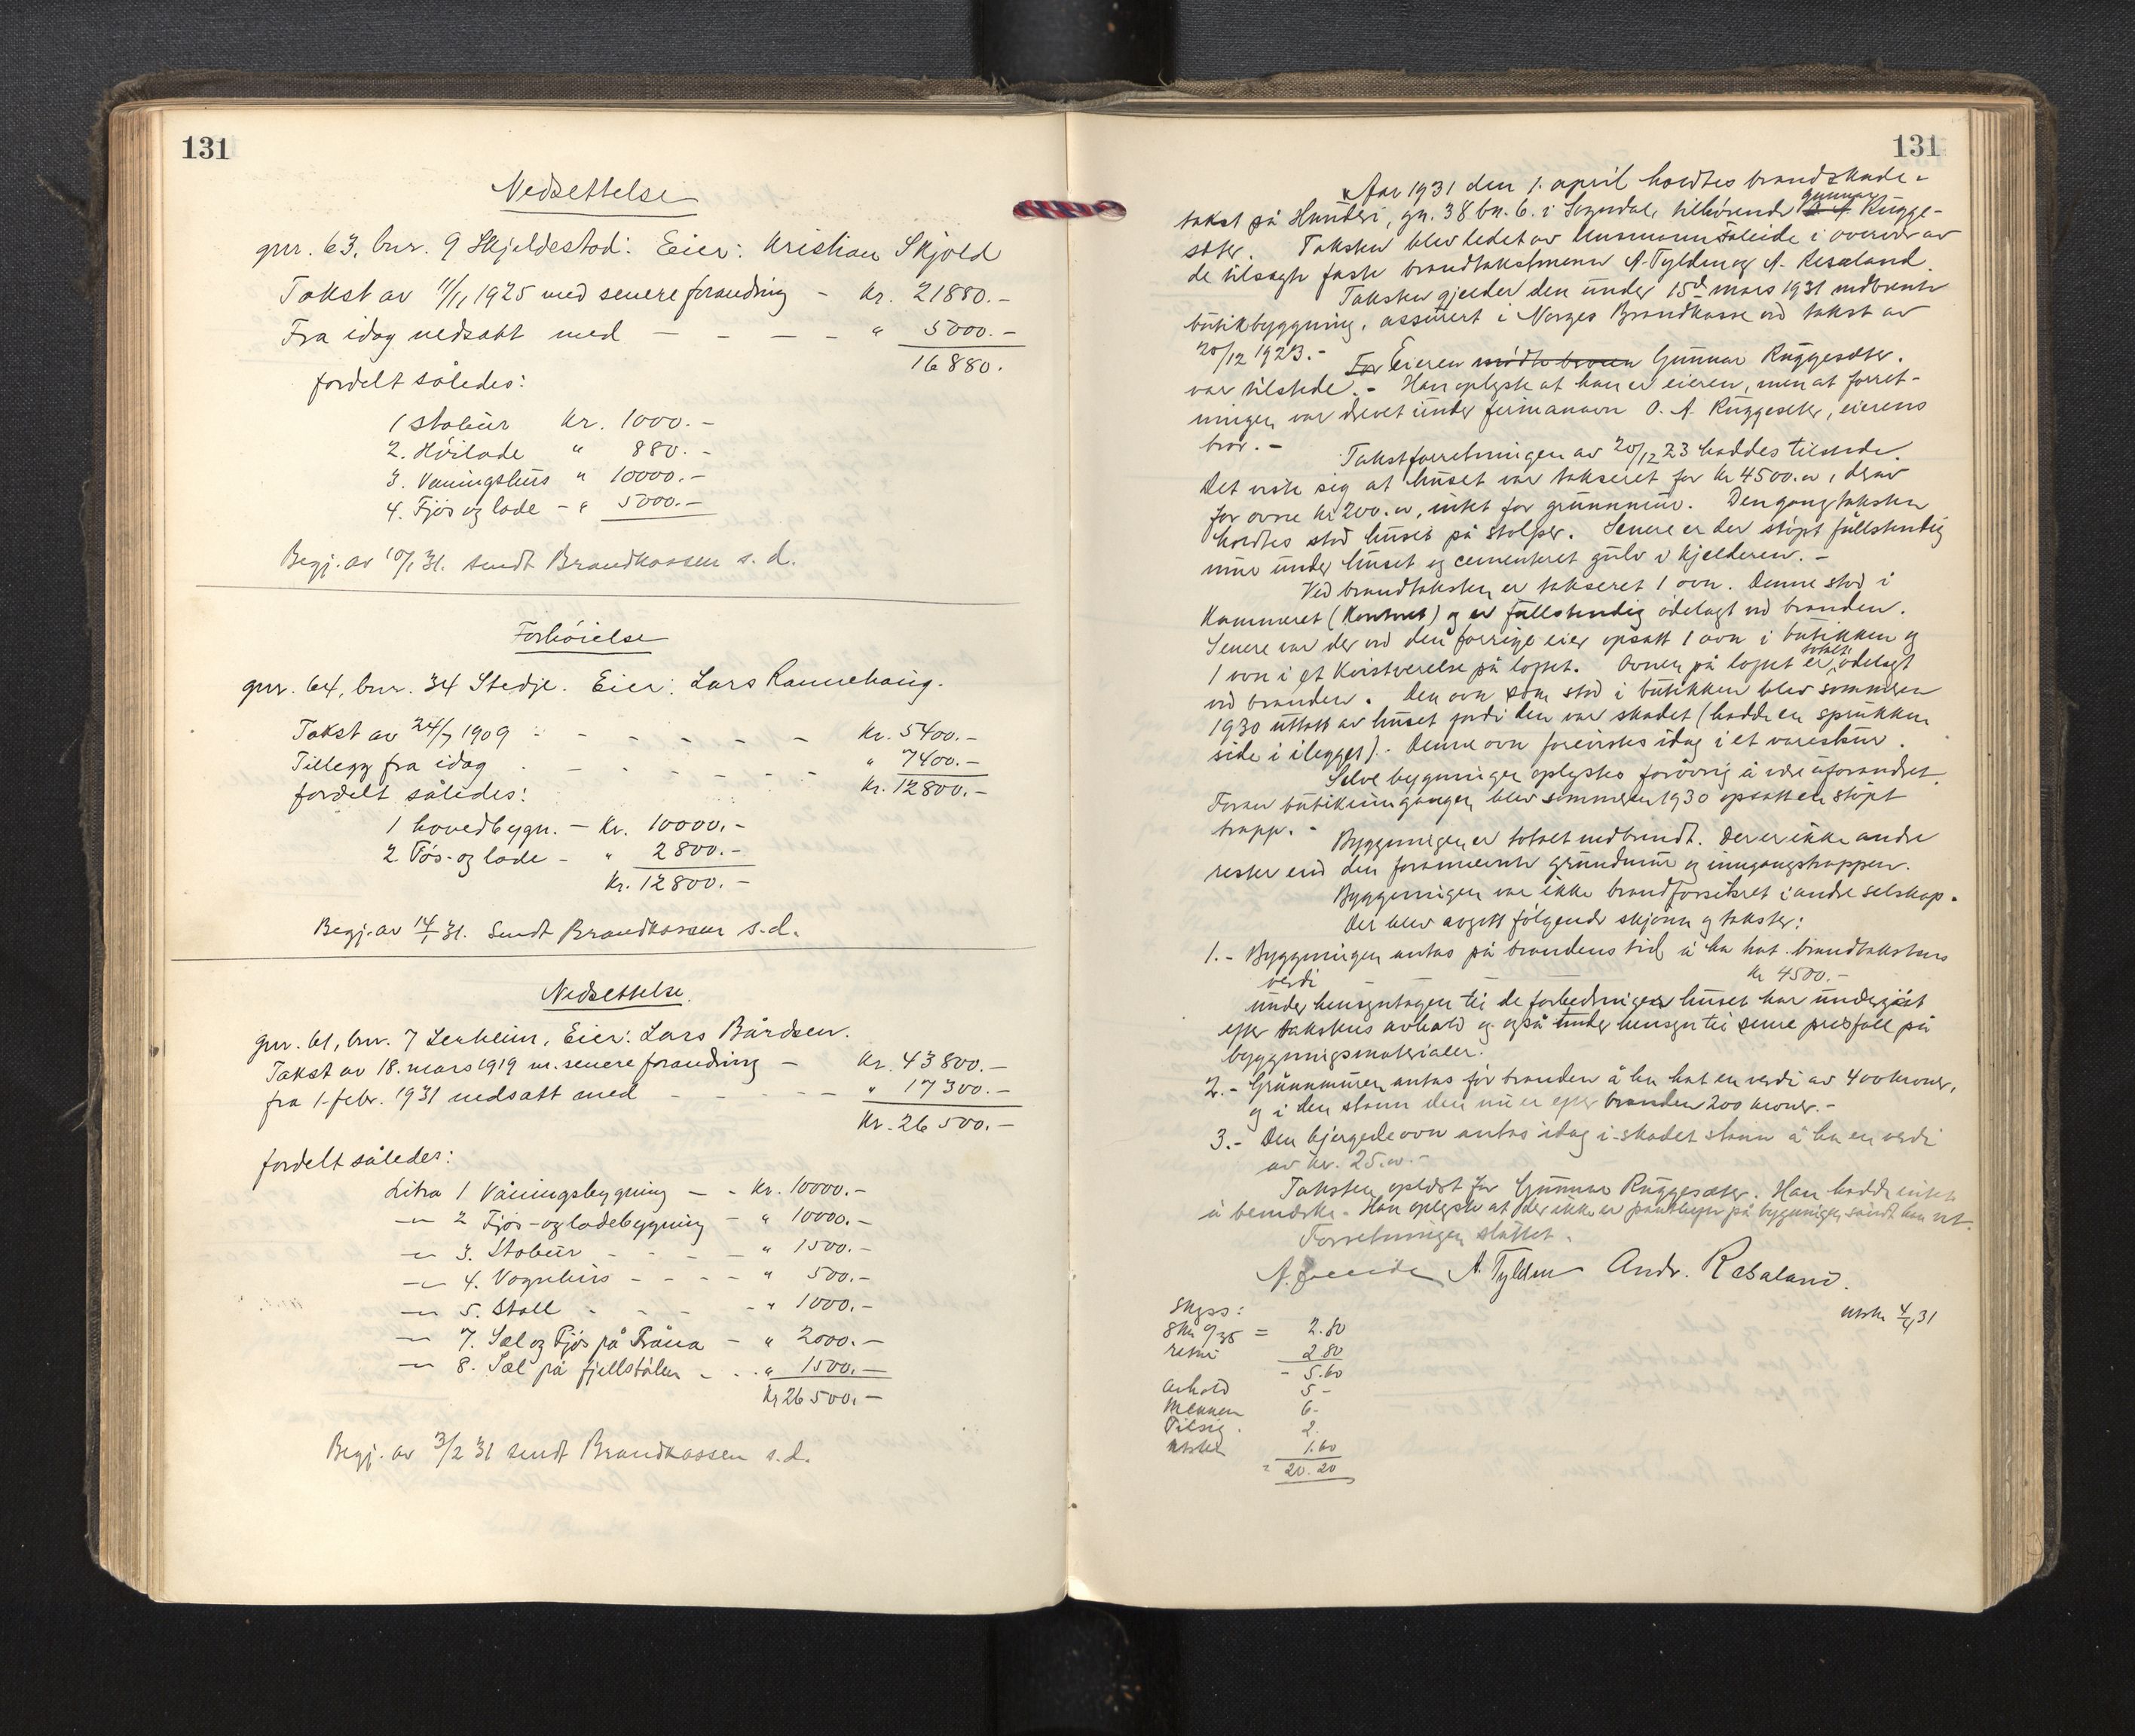 131
Nedsettelse
gnr. 63, bnr. 9 Skjeldestad: Eier: Kristian Skjold
Takst av 11/11 1925 med senere forandring - Kr. 21880.-
Fra idag nedsatt med - - - - " 5000.-
16880.
fordelt således:
1 stabur Kr. 1000.-
2. Høilade " 880.-
3. Våningshus " 10000.-
4. Fjøs og lade - " 5000.-
Begj. av 10/1 31. sendt Brandkassen s.d.
Forhøielse
gnr. 64, bnr. 34 Stedje. Eier: Lars Rannehaug.
Takst av 24/7 1909 - - - - - Kr. 5400.-
Tillegg fra idag - - - - - " 7400.-
Kr. 12800.-
fordelt således:
1 hovedbygn. - Kr. 10000.-
2 Fjøs- og lade - " 2800.-
Kr. 12800.-
Begj. av 14/1 31. Sendt Brandkassen s.d.
Nedsettelse.
gnr. 61, bnr. 7 Lerheim, Eier: Lars Bårdsen.
Takst av 18. mars 1919 m. senere forandring - Kr. 43800.-
fra 1. febr. 1931 nedsatt med - - - - " 17300.-
Kr. 26500.-
fordelt således:
Litra 1 Våningsbygning - - Kr. 10000.-
-"- 2 Fjøs- og ladebygning - " 10000.-
-"- 3. Stabur - - - - " 1500.-
-"- 4. Vognhus - - - - " 500.-
-"- 5. Stall - - - - " 1000.-
-"- 7. Sæl og Fjøs på Fråna - " 2000.-
-"- 8. Sæl på fjellstølen - - " 1500.-
Kr 26500.-
Begj. av 3/2 31 sendt Brandkassen s.d.
131
Aar 1931 den 1. april holdtes brandskade-
takst på Hunderi, gn. 38 bn. 6. i Sogndal, tilhørende Gunnar Rugge-
sæter. Taksten blev ledet av lensmann Foleide i overvær av
de tilsagte faste brandtakstmenn A. Tylden og A. Resaland.
Taksten gjelder den under 15de mars 1931 nedbrente
butikbyggning, assurert i Norges Brandkasse ved takst av
20/12 1923.- For Eieren mødte broren Gunnar Ruggesæter.
var tilstede.- Han oplyste at han er eieren, men at forret-
ningen var drevet under firmanavn O. A. Ruggesæter, eierens
bror.-
Takstforretningen av 20/12 23 haddes tilstede.
Det viste sig at huset var taksert for kr 4500.00, derav
for ovne kr 200.00, intet for grunnmur. Dengang taksten
holdtes stod huset på stolper. Senere er der støpt fullstendig
mur under huset og cementeret gulv i kjelderen.-
Ved brandtaksten er taksert 1 ovn. Denne stod i
Kammeret (Kontoret) og er fullstendig ødelagt ved branden.
Senere var der ved den forrige eier opsatt 1 ovn i butikken og
1 ovn i et Kvistværelse på loftet. Ovnen på loftet er totalt ødelagt
ved branden. Den ovn som stod i butikken blev sommeren
1930 uttatt av huset fordi den var skadet (hadde en sprukken
side i ilegget). Denne ovn forevistes idag i et vareskur.
Selve bygningen oplystes forøvrig å være uforandret.
Foran butikinngangen blev sommeren 1930 opsatt en støpt
trapp.-
Byggningen er totalt nedbrendt. Der er ikke andre
rester end den foran nevnte grundmur og inngangstrappen.
Byggningen var ikke brandforsikret i andre selskap.
Der blev avgitt følgende skjønn og takster:
1.- Byggningen antas på brandens tid å ha hat brandtakstens
verdi kr 4500.-
under hensyntagen til de forbedringer huset har undergått
efter takstens avhold og også under hensyn til senere prisfall på
bygningsmaterialer.
2.- Grunnmuren antas før branden å ha hat en verdi av 400 kroner,
og i den stann den nu er efter branden 200 kroner.-
3.- Den bjergede ovn antas idag i skadet stann å ha en verdi
av kr. 25.00.-
Taksten oplæst for Gunnar Ruggesæter. Han hadde intet
å bemerke. Han oplyste at der ikke er panteheft på bygningen såvidt han vet.
Forretningen sluttet.
A. Tylden Andr. Resaland.
utskr. 4/4 31
Skyss:
8 km 9/35 = 2.80
retur 2.80
- 5.60
Avhold 5-
Mennen 6-
Tilsig. 2.
utskr. 1.60
= 20.20